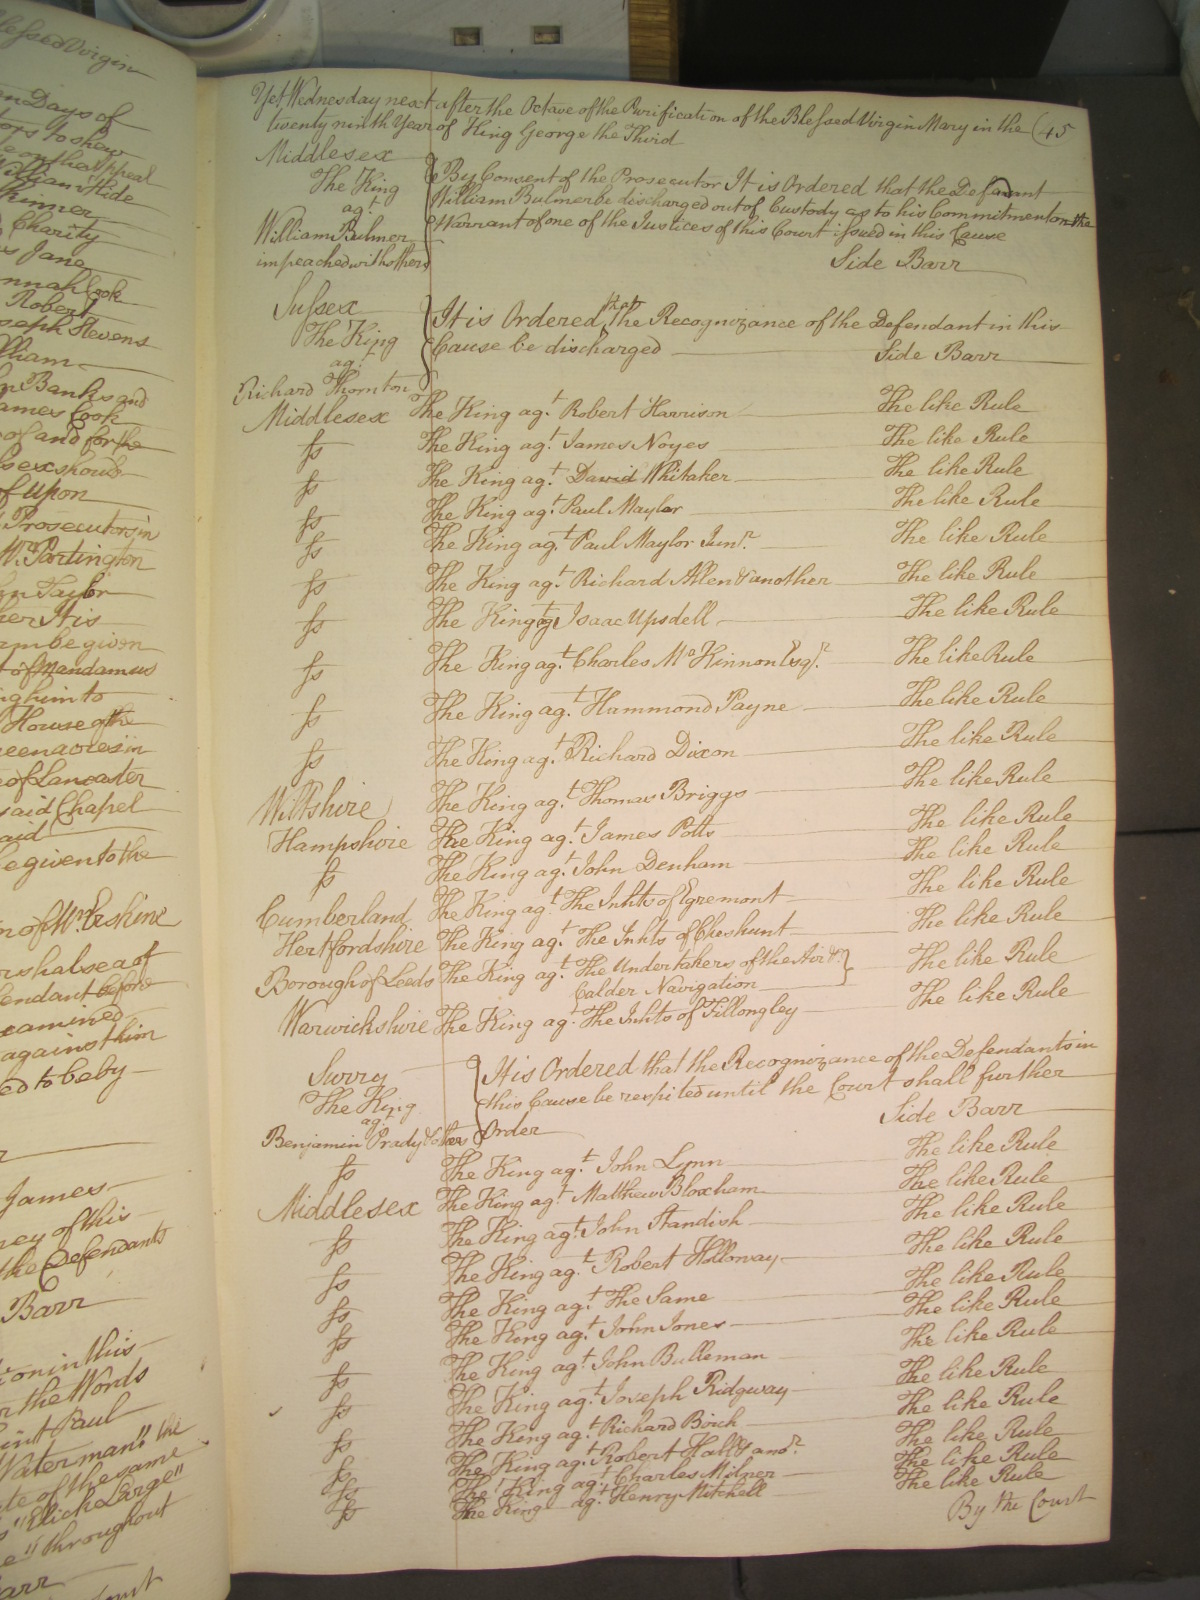 lessed Virgin
en Days of
tors to shew
e on the Appeal
William Hide
Skinner
Charity
s Jane
nnah Cook
Robert
seph Stevens
lham
n Banks and
ames Cook
of and for the
sex should
f Upon
Prosecutors in
Mr. Partington
n Taylor
her It is
am be given
t of Mandamus
ng him to
House of the
eenacres in
e of Lancaster
said Chapel
aid
e given to the
n of Mr. Erskine
rshalsea of
fendant before
xamined
against him
ed to be by
James
ney of this
the Defendants
Barr
ion in this
r the Words
int Paul
Waterman" the
te of the same
"Elich Large"
e" throughout
arr
Court
Yet Wednesday next after the Octave of the Purification of the Blessed Virgin Mary in the (45
twenty ninth Year of King George the Third
Middlesex
The King
agt.
William Bulmer
impeached with others
By Consent of the Prosecutor It is Ordered that the Defendant
William Bulmer be discharged out of Custody as to his Commitment on the
Warrant of one of the Justices of this Court issued in this Cause
Side Barr
Sussex
The King
agt.
Richard Thornton
It is Ordered that the Recognizance of the Defendant in this
Cause be discharged Side Barr
Middlesex The King agt. Robert Harrison The like Rule
ss The King agt. James Noyes The like Rule
ss The King agt. David Whitaker The like Rule
ss The King agt. Paul Maylor The like Rule
ss The King agt. Paul Maylor Junr. The like Rule
ss The King agt. Richard Allen & another The like Rule
ss The King agt. Isaac Upsdell The like Rule
ss The King agt. Charles McKinnon Esqr. The like Rule
ss The King agt. Hammond Payne The like Rule
ss The King agt. Richard Dixon The like Rule
Wiltshire The King agt. Thomas Briggs The like Rule
Hampshire The King agt. James Potts The like Rule
ss The King agt. John Denham The like Rule
Cumberland The King agt. The Inhts of Egremont The like Rule
Hertfordshire The King agt. The Inhts of Cheshunt The like Rule
Borough of Leeds The King agt. The Undertakers of the Air & The like Rule
Calder Navigation
Warwickshire The King agt. The Inhts of Fillongley The like Rule
Surry
The King
agt.
Benjamin Prady & others
It is Ordered that the Recognizance of the Defendants in
this Cause be respited until the Court shall further
Order Side Barr
ss The King agt. John Lynn The like Rule
Middlesex The King agt. Matthew Bloxham The like Rule
ss The King agt. John Standish The like Rule
ss The King agt. Robert Holloway The like Rule
ss The King agt. The Same The like Rule
ss The King agt. John Jones The like Rule
ss The King agt. John Bulleman The like Rule
ss The King agt. Joseph Ridgway The like Rule
ss The King agt. Richard Boich The like Rule
ss The King agt. Robert Hall & anor. The like Rule
ss The King agt. Charles Milner The like Rule
ss The King agt. Henry Mitchell The like Rule
By the Court